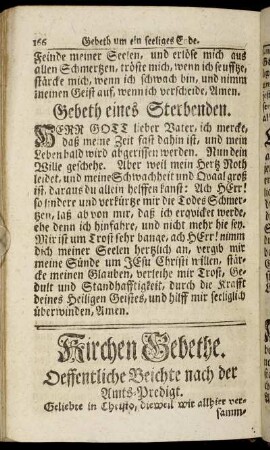 166 Gebeth um ein seeliges Ende.
Feinde meiner Seelen, und erlöse mich aus
allen Schmertzen, tröste mich, wenn ich seufftze,
stärcke mich, wenn ich schwach bin, und nimm
meinen Geist auf, wenn ich verscheide, Amen.
Gebeth eines Sterbenden.
HERR GOTT lieber Vater, ich mercke,
daß meine Zeit fast dahin ist, und mein
Leben bald wird abgerissen werden. Nun dein
Wille geschehe. Aber weil mein Hertz Noth
leidet, und meine Schwachheit und Quaal groß
ist, daraus du allein helffen kanst: Ach HErr!
so lindere und verkürtze mir die Todes Schmer-
tzen, laß ab von mir, daß ich erqvicket werde,
ehe denn ich hinfahre, und nicht mehr hie sey.
Mir ist um Trost sehr bange, ach HErr! nimm
dich meiner Seelen hertzlich an, vergib mir
meine Sünde um JEsu Christi willen, stär-
cke meinen Glauben, verleihe mir Trost, Ge-
dult und Standhafftigkeit, durch die Krafft
deines Heiligen Geistes, und hilff mir seeliglich
überwinden, Amen.
Kirchen Gebethe.
Oeffentliche Beichte nach der
Amts-Predigt.
Geliebte in Christo, dieweil wir allhier ver-
samm-